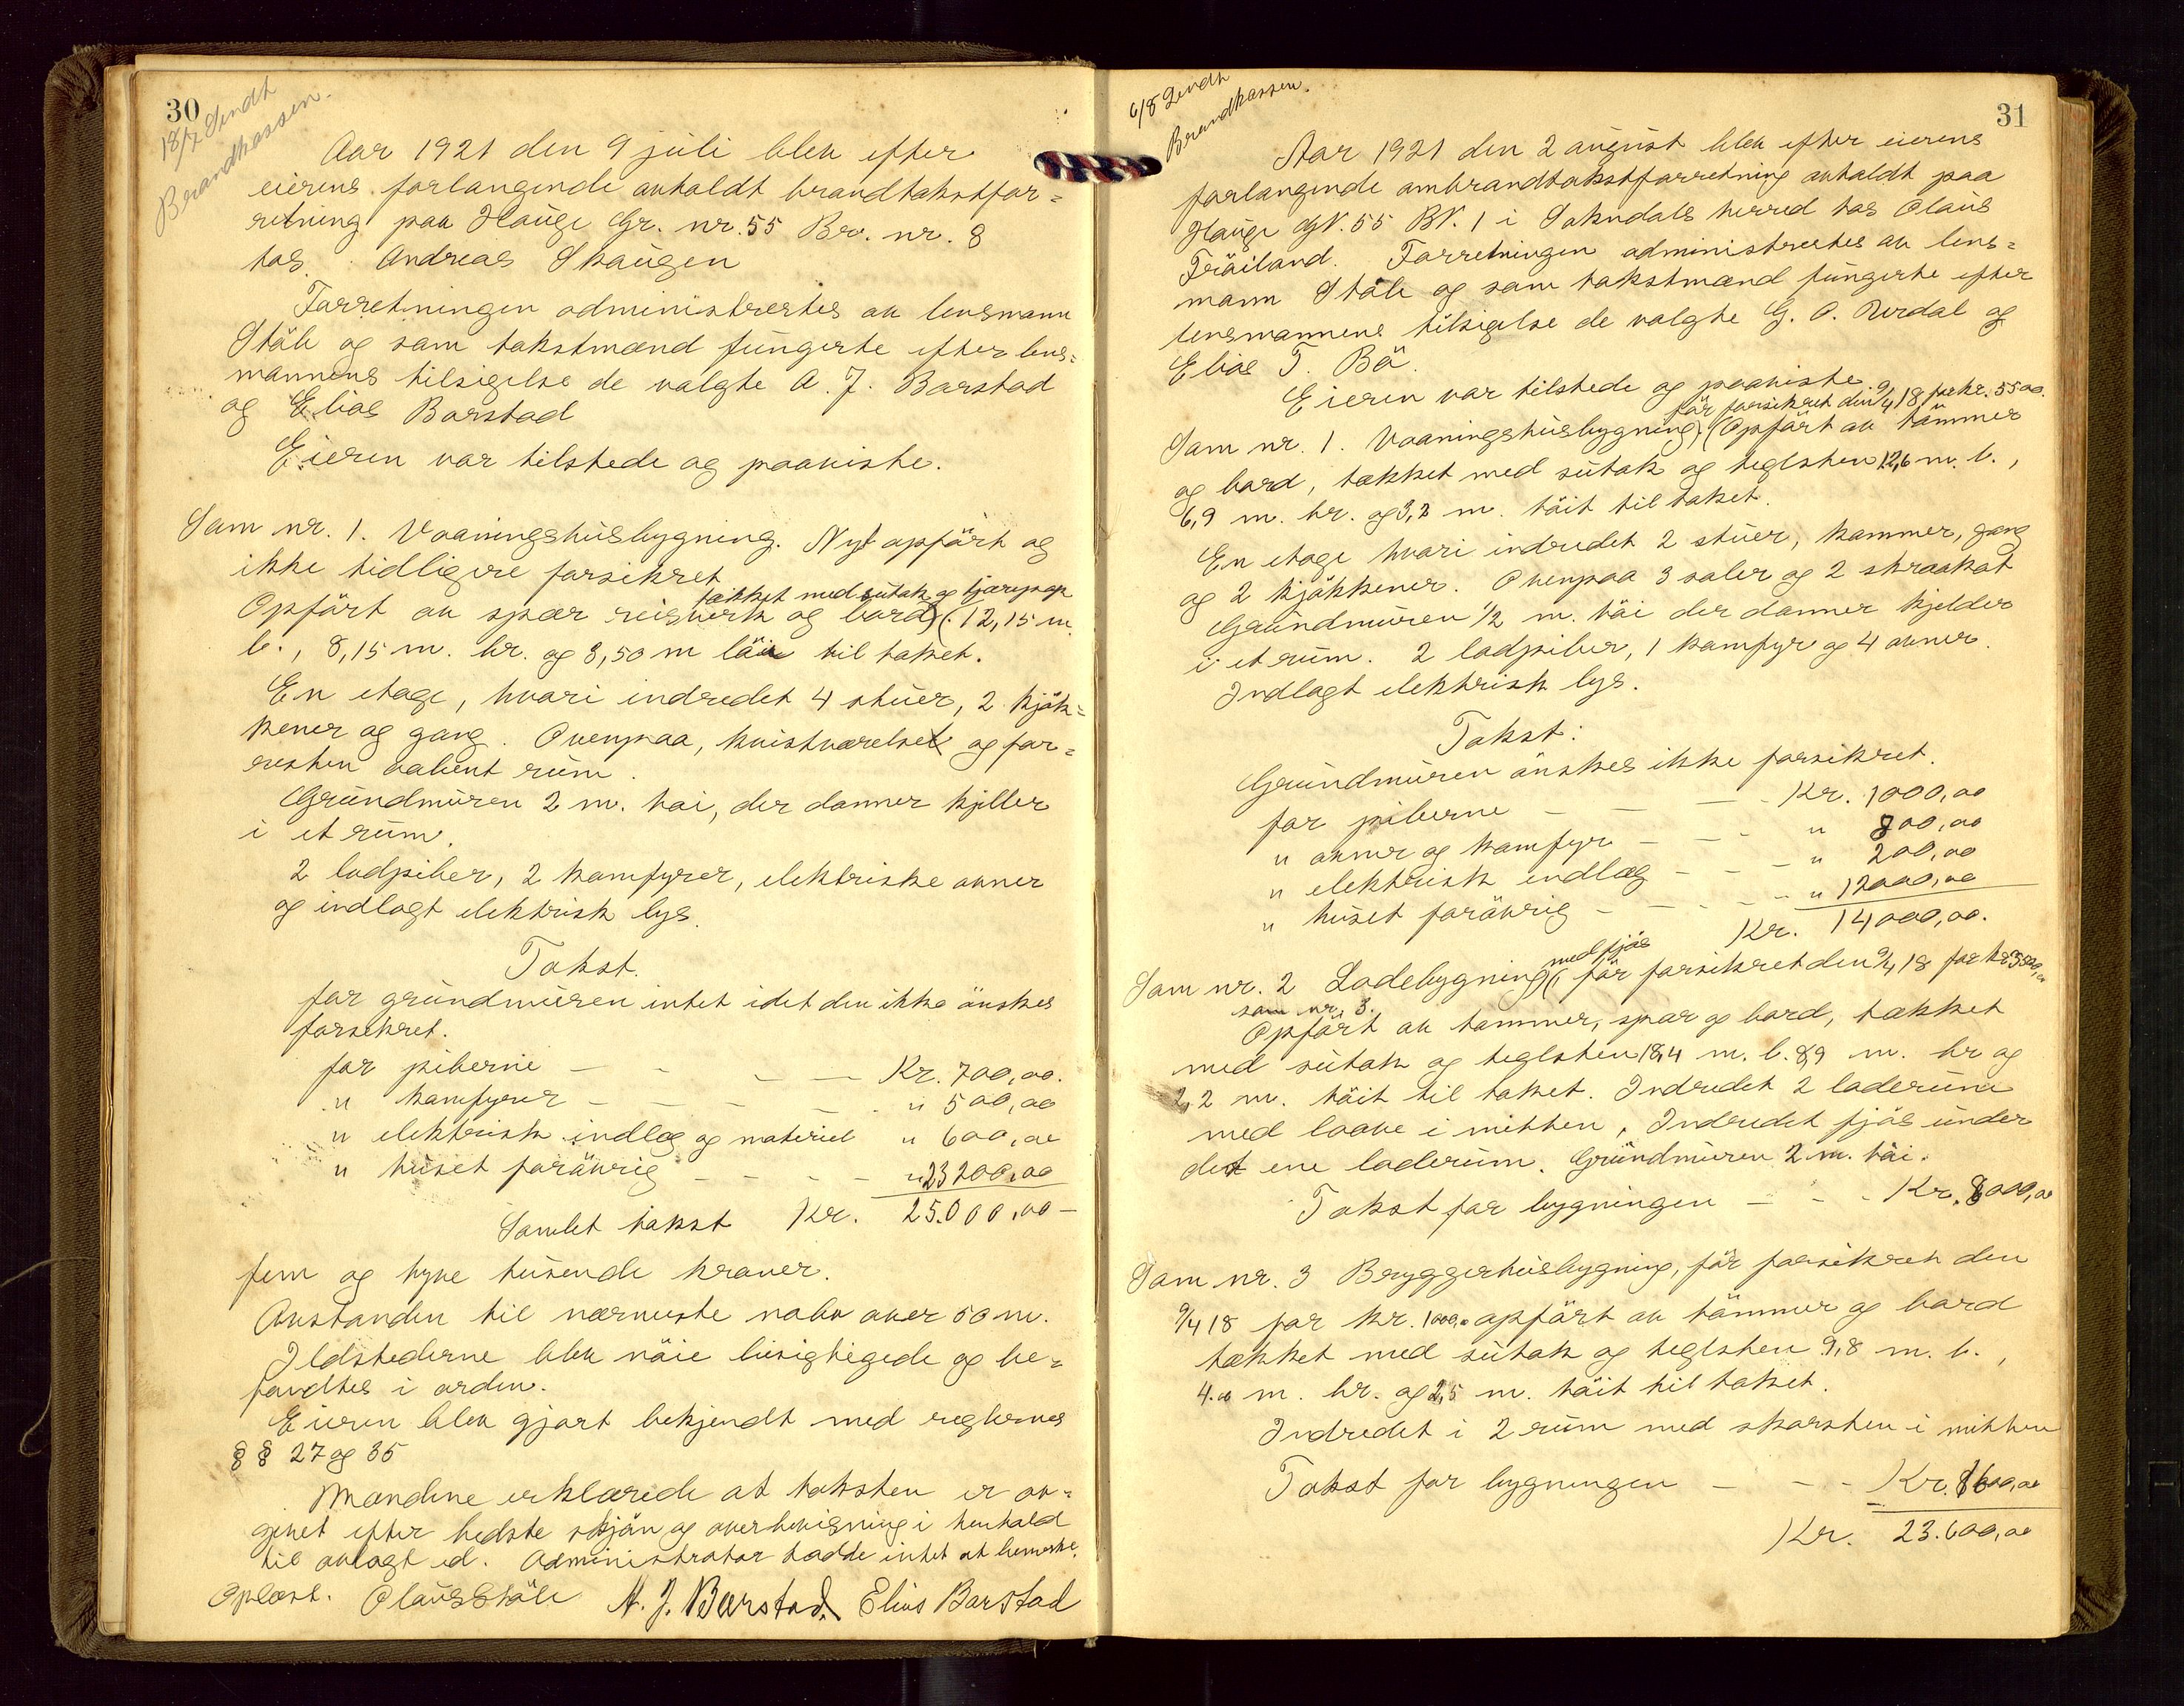 30
18/7 Sendt
Brandkassen.
Aar 1921 den 9 juli blev efter
eierens forlangende avholdt brandtakstfor-
retning paa Hauge Gr. nr. 55 Br. nr. 8
hos Andreas Skaugen
Forretningen administrertes av lensmann
Ståle og som takstmænd fungerte efter lens-
mannens tilsigelse de valgte A. J. Barstad
og Elias Barstad
Eieren var tilstede og paaviste.
Som nr. 1. Vaaningshusbygning. Nyt opført og
ikke tidligere forsikret
tækket med sutak og tjærepap
Opført av spær reisverk og bord (. 12,15 m.
l., 8,15 m. br. og 3,50 m til taket.
En etage, hvori indredet 4 stuer, 2 kjøk-
kener og gang. Ovenpaa, kvistværelset og for-
resten aabent rum.
Grundmuren 2 m. høi, der danner kjeller
i et rum.
2 lodpiber, 2 komfyrer, elektriske ovner
og indlagt elektrisk lys.
Takst.
for grundmuren intet idet den ikke ønskes
forsikret.
for piberne — - - — Kr. 700,00.
" komfyrer - - - — " 500,00
" elektrisk indlæg og materiel " 600,00
" huset forøvrig - - - - " 23200,00
Samlet takst Kr. 25.000,00 -
fem og tyve tusende kroner.
Avstanden til nærmeste nabo over 50 m.
Ildstederne blev nøie besigtigede og be-
fandtes i orden.
Eieren blev gjort bekjendt med reglernes
§ § 27 og 35
Mændene erklærede at taksten er av-
givet efter bedste skjøn og overbevisning i henhold
til avlagt ed. Administrator hadde intet at bemerke.
Oplæst. Olaus Ståle A. J. Barstad. Elias Barstad
31
6/8 Sendt
Brandkassen.
Aar 1921 den 2 august blev efter eierens
forlangende ombrandtakstforretning avholdt paa
Hauge GN. 55 BN. 1 i Sokndals herred hos Olaus
Frøiland. Forretningen administrertes av lens-
mann Ståle og som takstmænd fungerte efter
lensmannens tilsigelse de valgte G. O. Urdal og
Elias T. Bø.
Eieren var tilstede og paaviste.
før forsikret den 9/4 18 for kr. 5500.
Som nr. 1. Vaaningshusbygning). (Opført av tømmer
og bord, tækket med sutak og teglsten 12,6 m. l.,
6,9 m. br. og 3,2 m. høit til taket.
En etage hvori indredet 2 stuer, kammer, gang
og 2 kjøkkener. Ovenpaa 3 saler og 2 skraakot
Grundmuren 1/2 m. høi der danner kjelder
i et rum. 2 lodpiber, 1 komfyr og 4 ovner.
Indlagt elektrisk lys.
Takst:
Grundmuren ønskes ikke forsikret.
for piberne - — — - Kr. 1000,00
" ovner og komfyr - — - " 800,00
" elektrisk indlæg - - - " 200,00
" huset forøvrig - - - - " 12000,00
Kr. 14000,00.
med fjøs
Som nr. 2 Ladebygning (, før forsikret den 9/4 18 for kr 3500,00
som nr. 3.
Opført av tømmer, spær og bord, tækket
med sutak og teglsten 18,4 m. l. 8,9 m. br og
2,2 m. høit til taket. Indredet 2 laderum
med laave i mitten, Indredet fjøs under
det ene laderum. Grundmuren 2 m. høi.
Takst for bygningen — - - Kr. 8000,00
Som nr. 3 Bryggerhusbygning, før forsikret den
9/4 18 for kr. 1000,00 opført av tømmer og bord
tækket med sutak og teglsten 9,8 m. l.,
4.00 m. br. og 2,5 m. høit til taket.
Indredet i 2 rum med skorsten i mitten
Takst for bygningen — - - Kr. 1600,00
Kr. 23.600,00